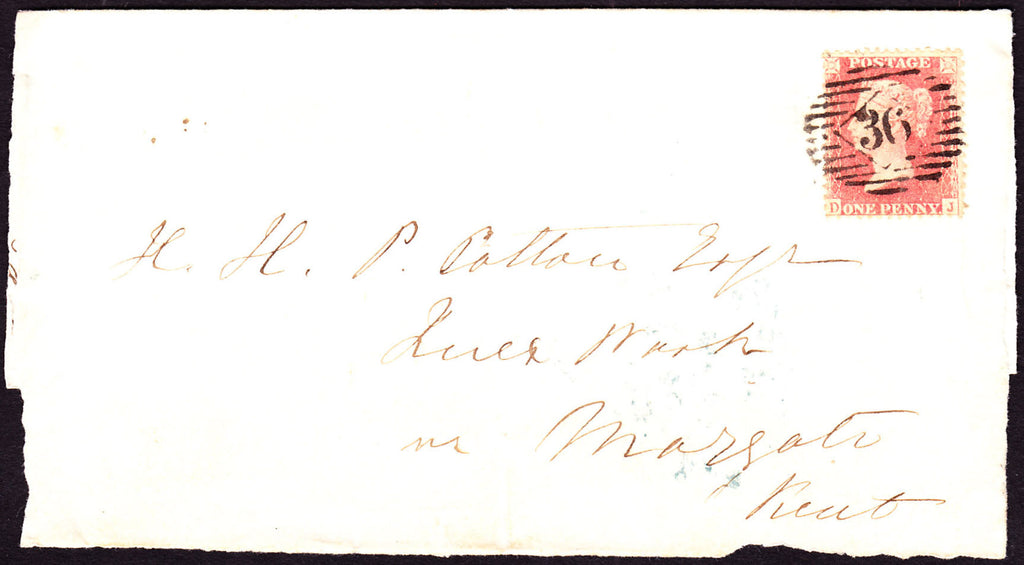 POSTAGE
36
D ONE PENNY J
H. H. P. Cotton Esqr
Quex
nr Margate
Kent